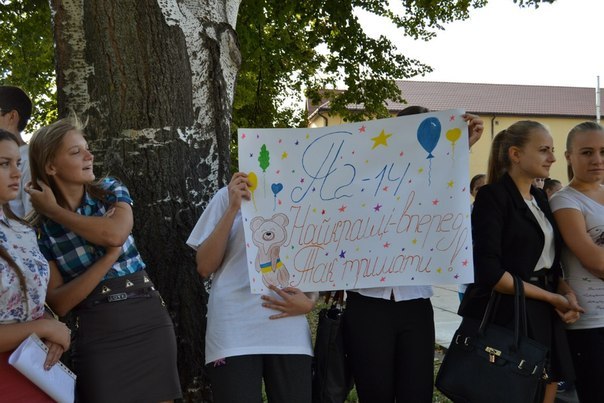 Д2-14
Найкращі-вперед
Так тримати